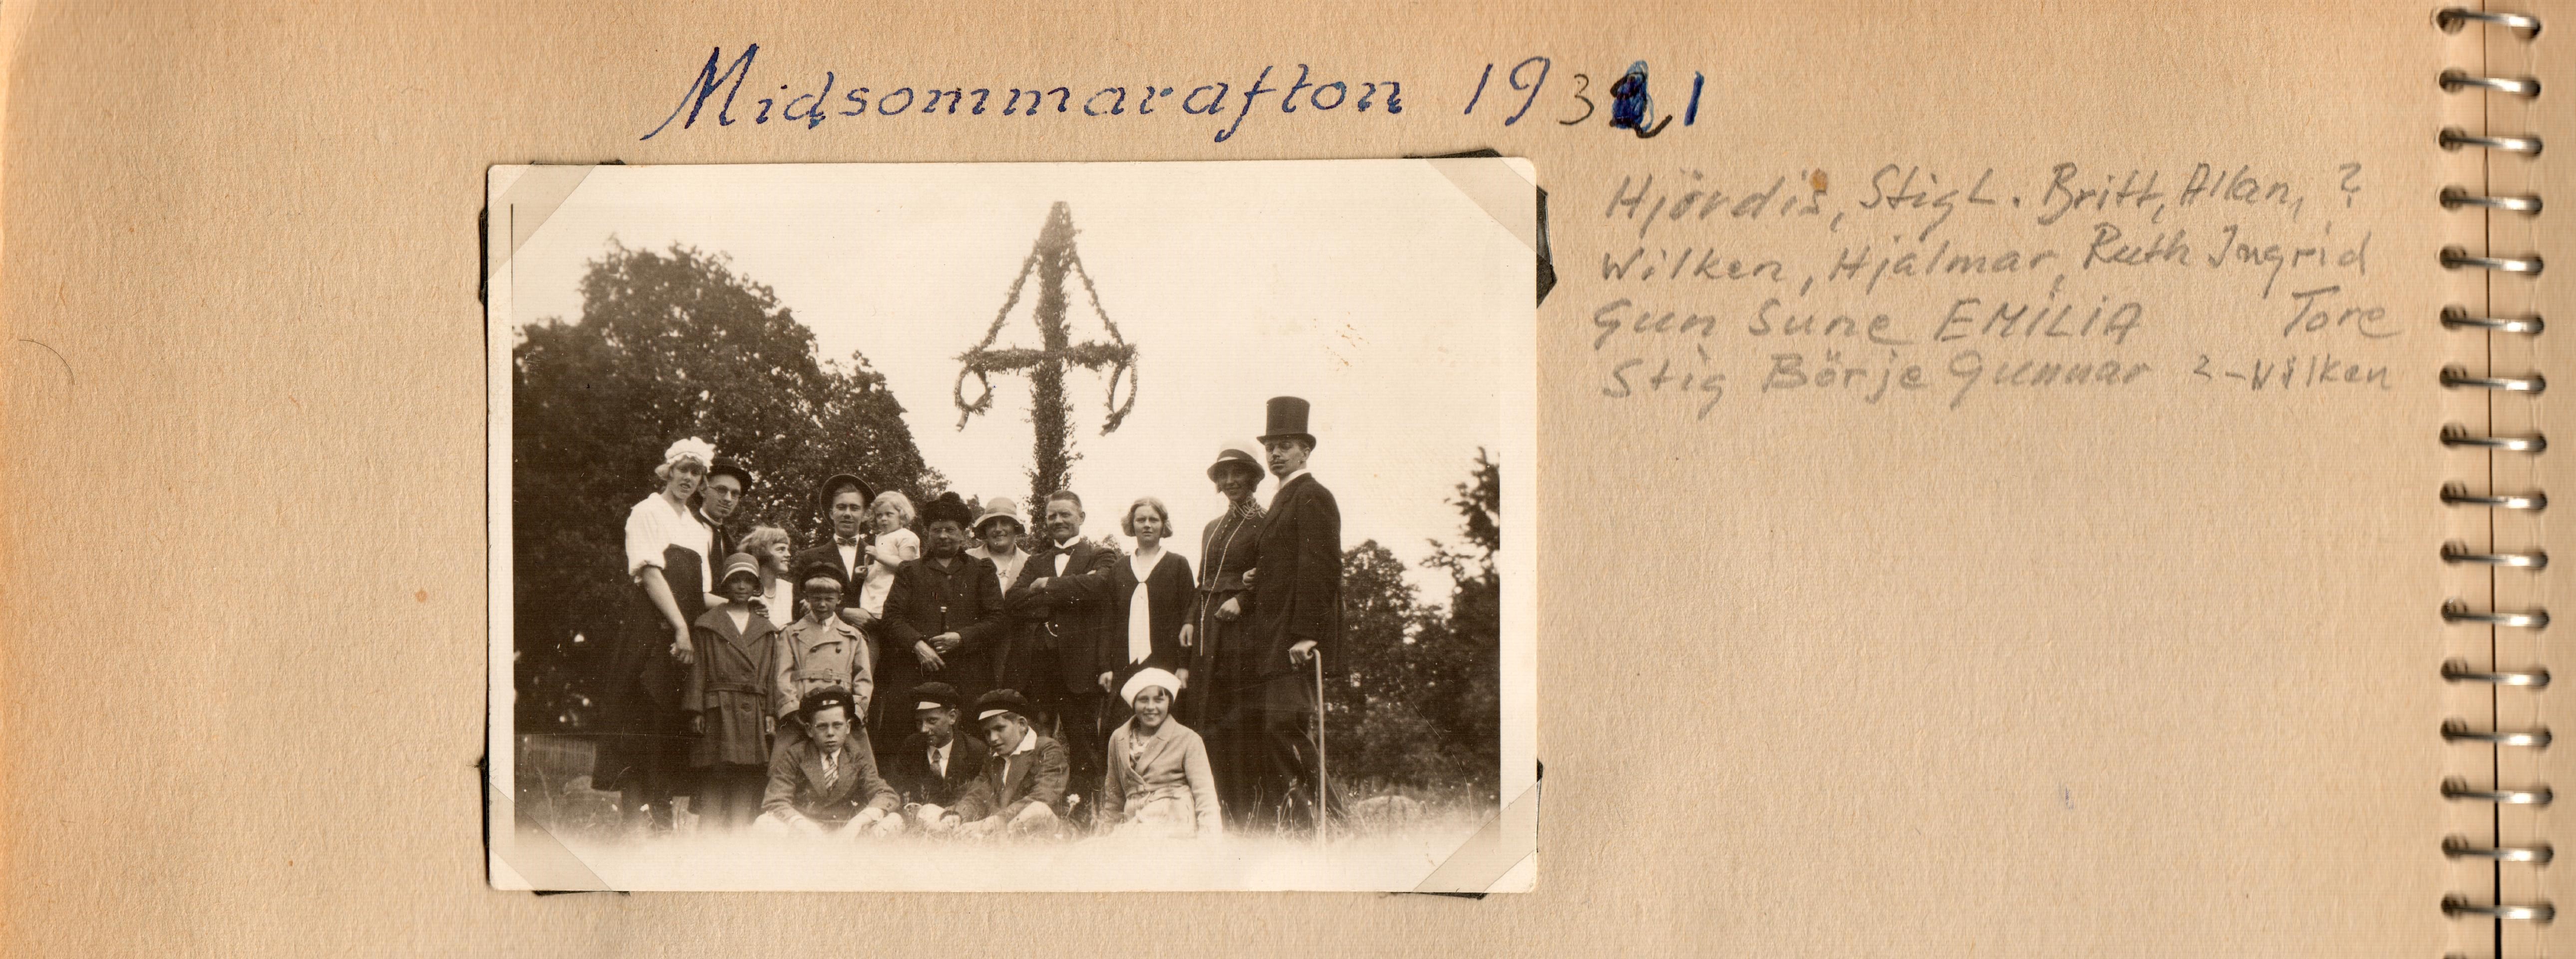 Midsommarafton 1931
Hjördis, Stig L. Britt, Allan, ?
Wilken, Hjalmar, Ruth Ingrid
Gun Sune EMILIA Tore
Stig Börje Gunnar ?-Wilken